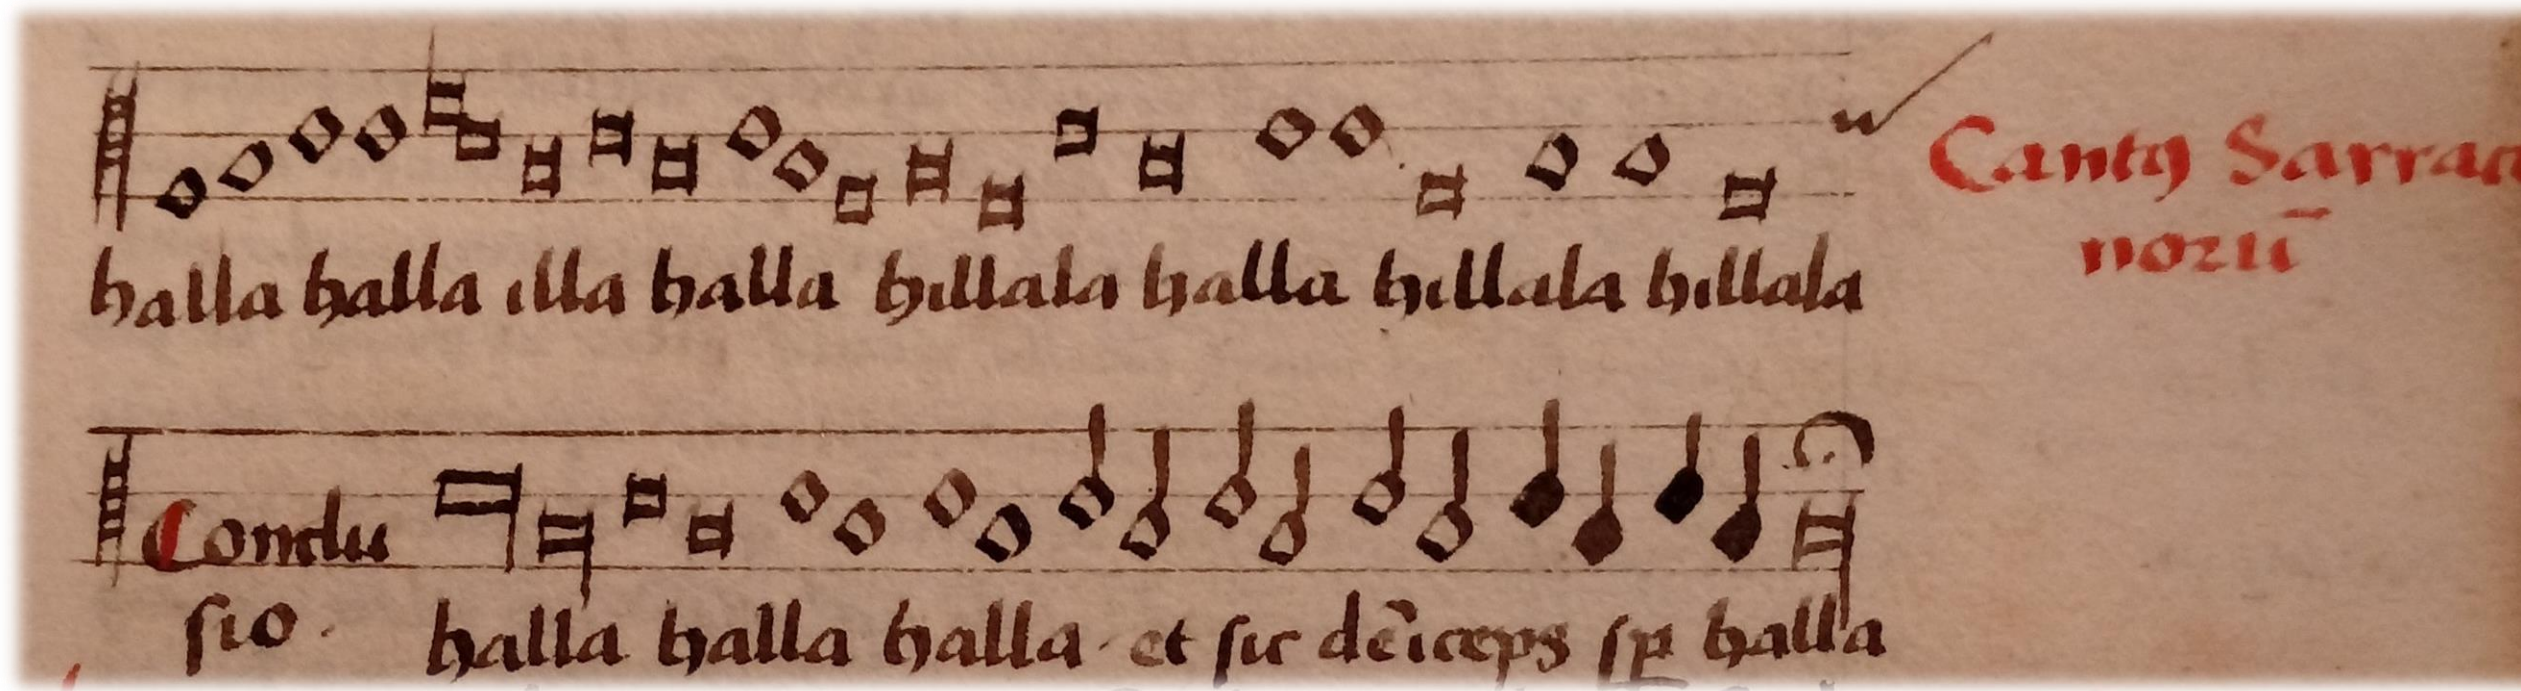 halla halla illa halla hillala halla hillala hillala
Cantꝯ Sarraci
norū
Conclu
sio. halla halla halla. et sic dēīceps sp̄ halla